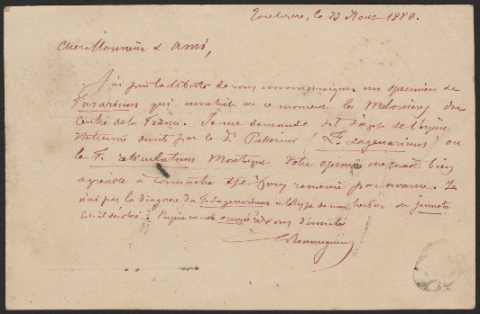 Toulouse, le 23 Aout 1880.
Cher Monsieur & Ami,
J'ai pris la liberté de vous communiquer un specimen de
Fusarium qui envahit en ce moment les Melonières du
Centre de la France. Je me demande s'il s'agit de l'espèce
Italienne décrite par le Dr Passerini (F. lagenarium) ou
le F. reticulatum Montagne. Votre opinion me serait bien
agréable à connaître & je vous remercie par avance. Je
n'ai pas la diagnose du F. lagenarium
et il
Vous d'amitié
C. Roumeguère